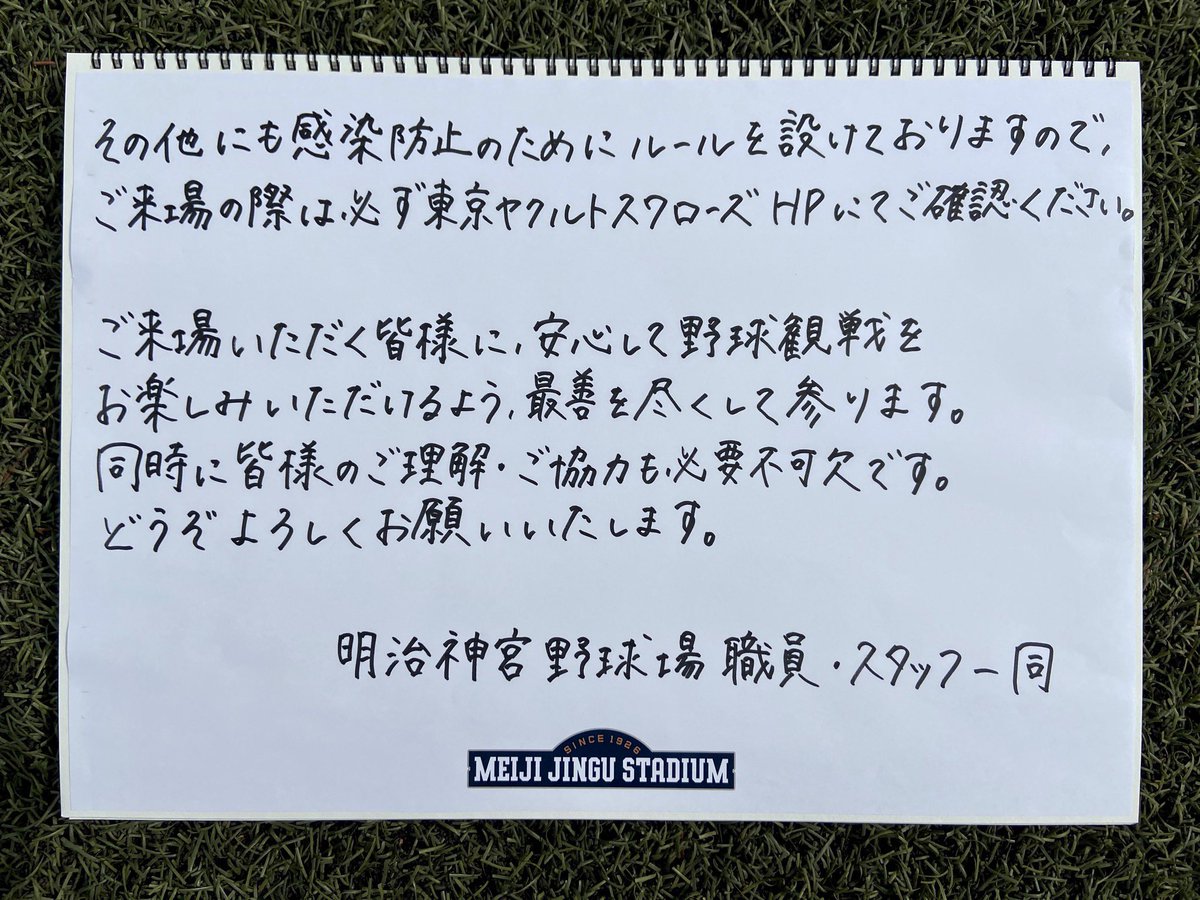 その他にも感染防止のためにルールを設けておりますので、
ご来場の際は必ず東京ヤクルトスワローズHPにてご確認ください。
ご来場いただく皆様に、安心して野球観戦を
お楽しみいただけるよう、最善を尽くして参ります。
同時に皆様のご理解・ご協力も必要不可欠です。
どうぞよろしくお願いいたします。
明治神宮野球場 職員・スタッフ一同
SINCE 1926
MEIJI JINGU STADIUM